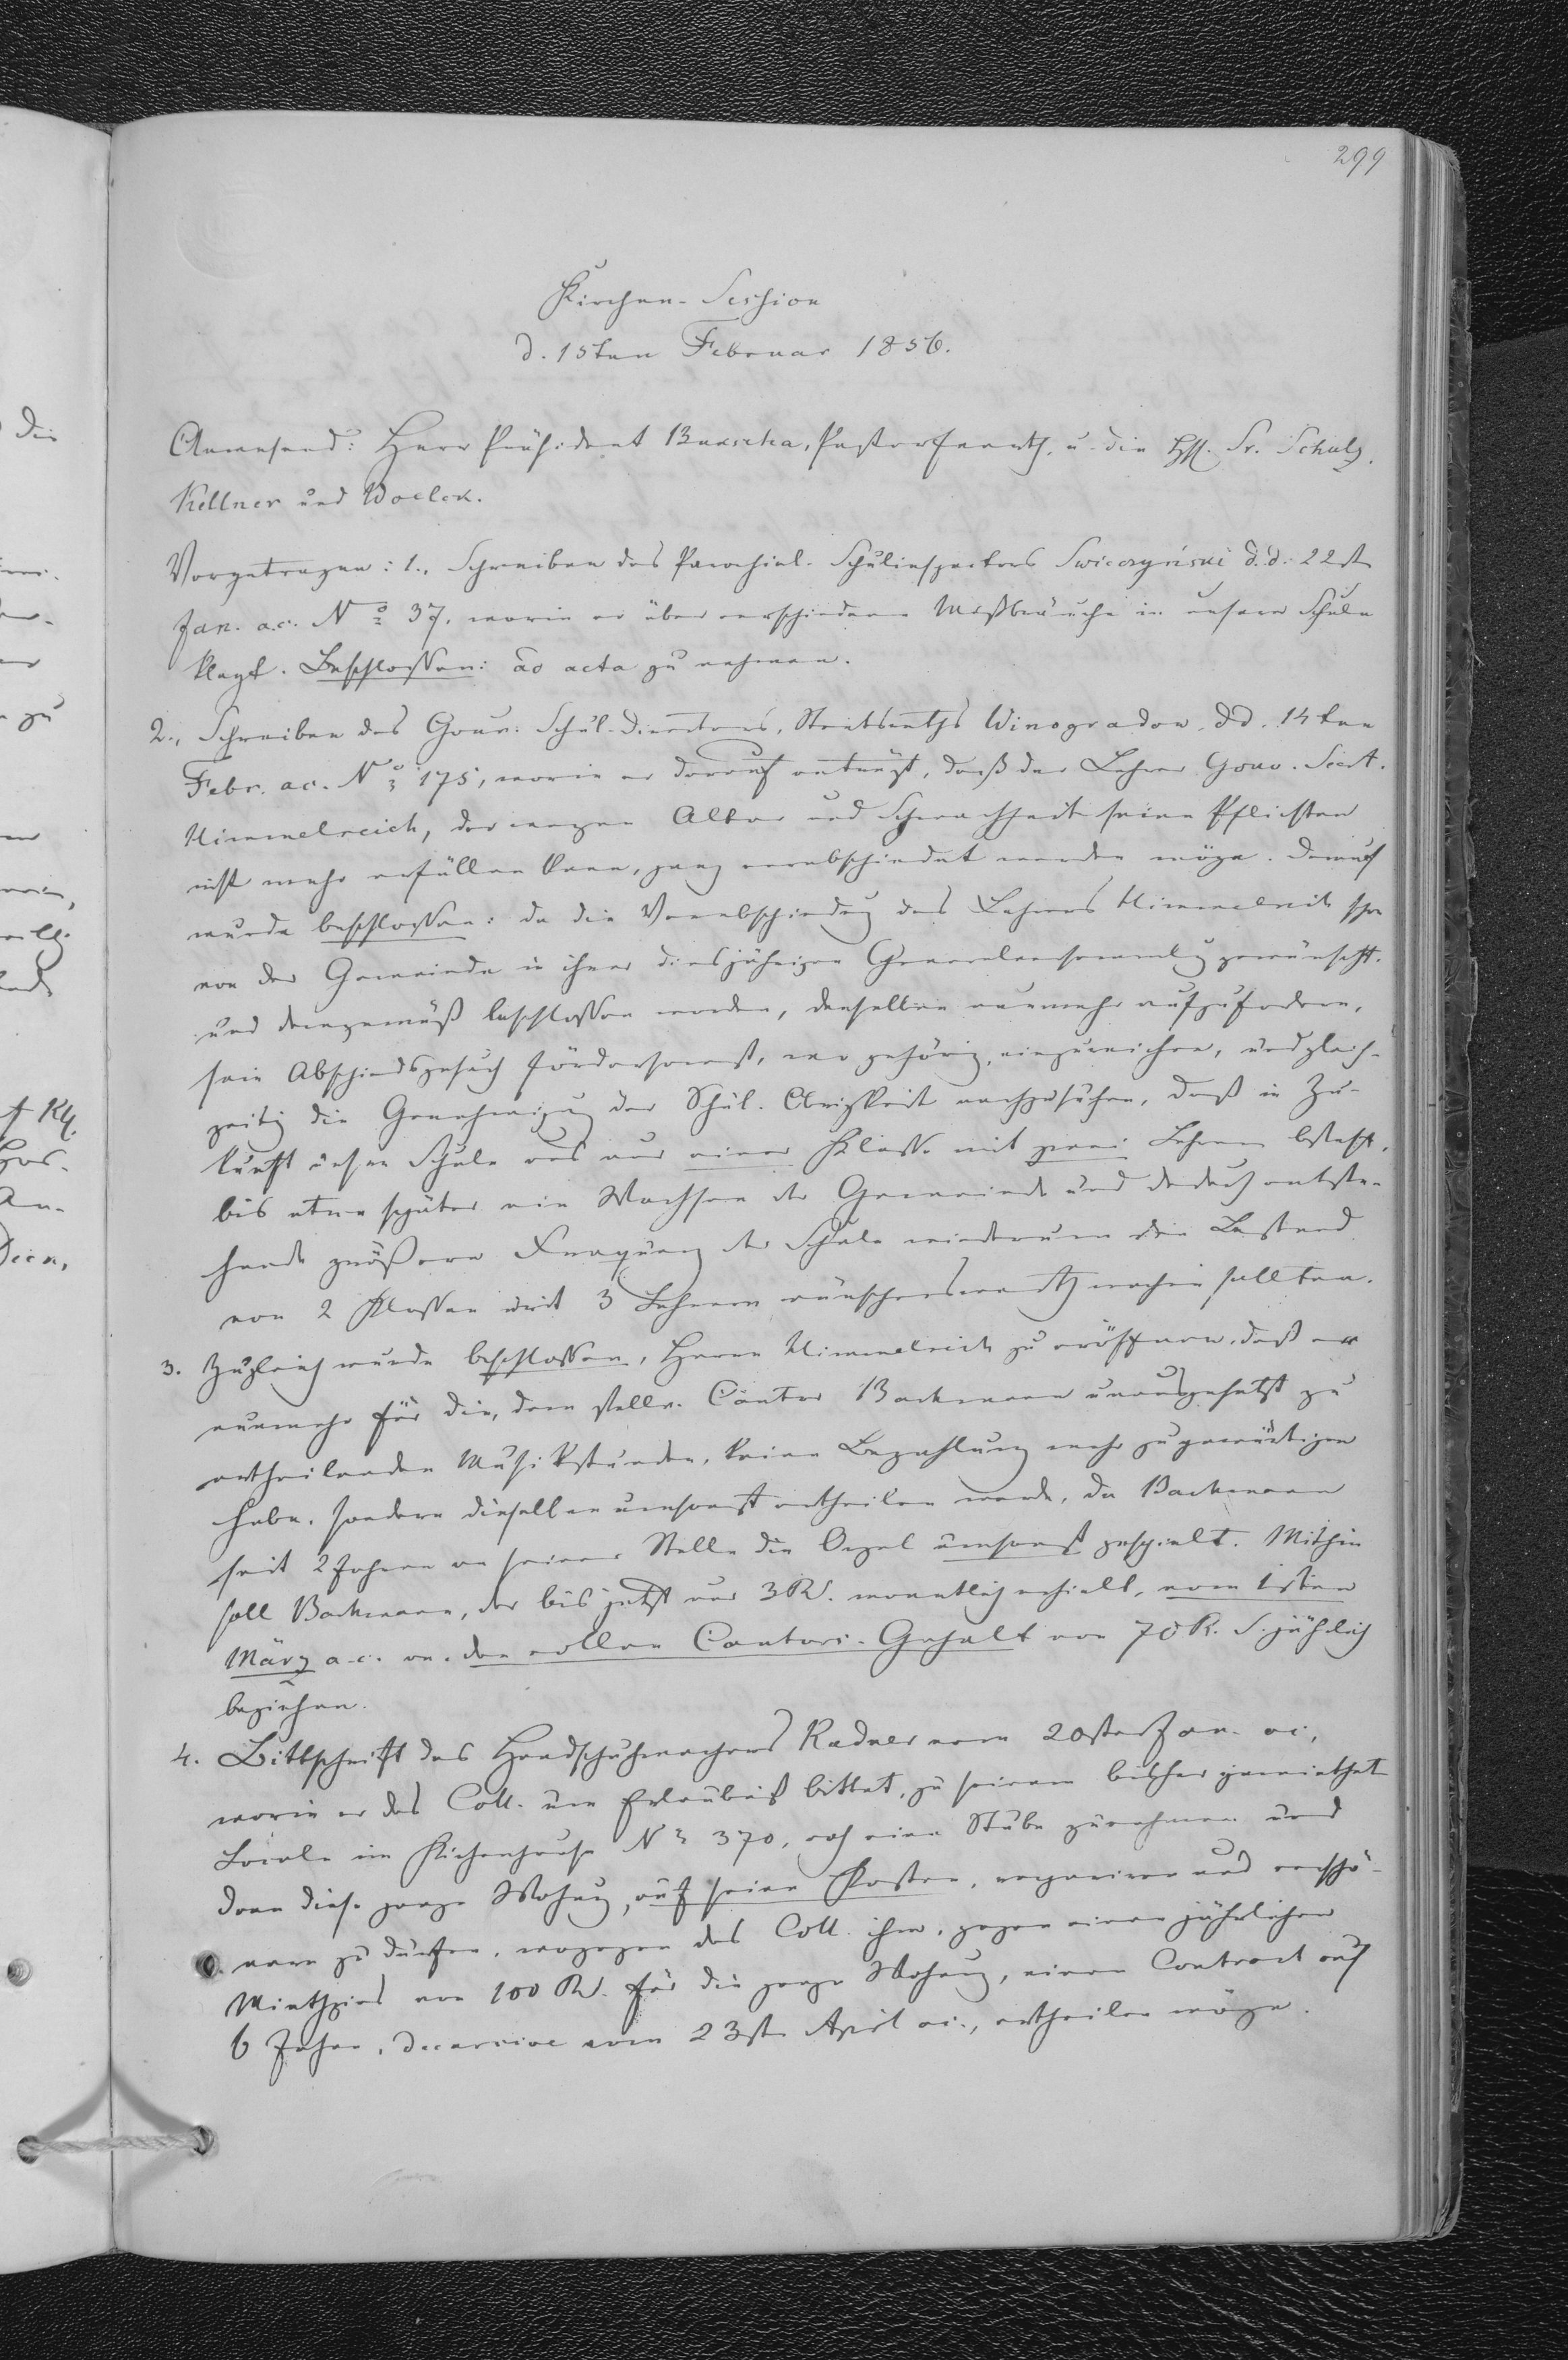 299
Kirchen-Session
d. 15ten Februar 1856.
Anwesend: Herr Präsident Buascha, Pastor Everth, u. die HH. Fr. Schulz,
Kellner und Woelck.
Vorgetragen: 1., Schreiben des Parochial-Schulinspectors Swiczyński d.d. 22st
Jan. a.c. No 37, worin er über verschiedene Mißbräuche in unserer Schule
klagt. Beschlossen: ad acta zu nehmen.
2., Schreiben des Gouv. Schul-Directors, Staatsraths Winogradow, dd. 14ten
Febr. ac. No 175, worin er darauf anträgt, daß der Lehrer Gouv. Secrt.
Himmelreich, der wegen Alter und Schwachheit seine Pflichten
nicht mehr erfüllen kann, ganz verabschiedet werden möge. Darauf
wurde beschlossen: da die Verabschiedung des Lehrers Himmelreich schon
von der Gemeinde in ihrer diesjährigen Generalversammlung gewünscht,
und demgemäß beschlossen worden, denselben nunmehr aufzufordern,
sein Abschiedsgesuch fördersamst, wo gehörig, einzureichen, und gleich-
zeitig die Genehmigung der Schul-Obrigkeit nachzusuchen, daß in Zu-
kunft unsere Schule aus nur einer Klasse mit zwei Lehrern besteht,
bis etwa später ein Wachsen der Gemeinde und dadurch entste-
hende größere Frequenz der Schule wiederum den Bestand
von 2 Klassen mit 3 Lehrern wünschenswerth machen sollten.
3. Zugleich wurde beschlossen, Herrn Himmelreich zu eröffnen, daß er
nunmehr für die, dem stellv. Cantor Backmann unausgesetzt zu
ertheilenden Musikstunden, keine Bezahlung mehr zu gewärtigen
habe, sondern dieselben umsonst ertheilen werde, da Backmann
seit 2 Jahren an seiner Stelle die Orgel umsonst gespielt. Mithin
soll Backmann, der bis jetzt nur 3 R. monatlich erhielt, vom 1sten
März a.c. an, den vollen Cantors-Gehalt von 70 R. S. jährlich
beziehen.
4. Bittschrift des Handschuhmachers Radner vom 20sten Jan. ac.,
worin er das Coll. um Erlaubniß bittet, zu seinem bisher gemiethet
Locale im Kirchenhause No 370, noch eine Stube zunehmen und
dann diese ganze Wohnung, auf seine Kosten, repariren und verschö-
nern zu dürfen, wogegen das Coll. ihm, gegen einen jährlichen
Miethzins von 100 R. für die ganze Wohnung, einen Contract auf
6 Jahre, vom 23st April ac., ertheilen möge.